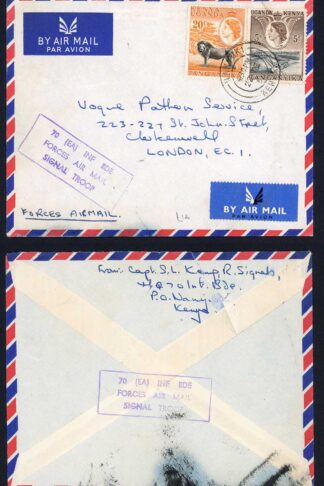 BY AIR MAIL
PAR AVION
UGANDA
20c
TANGANYIKA
UGANDA KENYA
5c
TANGANYIKA
Vogue Pattern Service,
223-227 St. John Street,
Clerkenwell
LONDON, EC.1.
70 (EA) INF BDE
FORCES AIR MAIL
SIGNAL TROOP
FORCES AIRMAIL.
BY AIR MAIL
PAR AVION
From: Capt. S.L. Kemp, R. Signals,
HQ 70 Inf. Bde.
P.O.
Kenya
70 (EA) INF BDE
FORCES AIR MAIL
SIGNAL TROOP